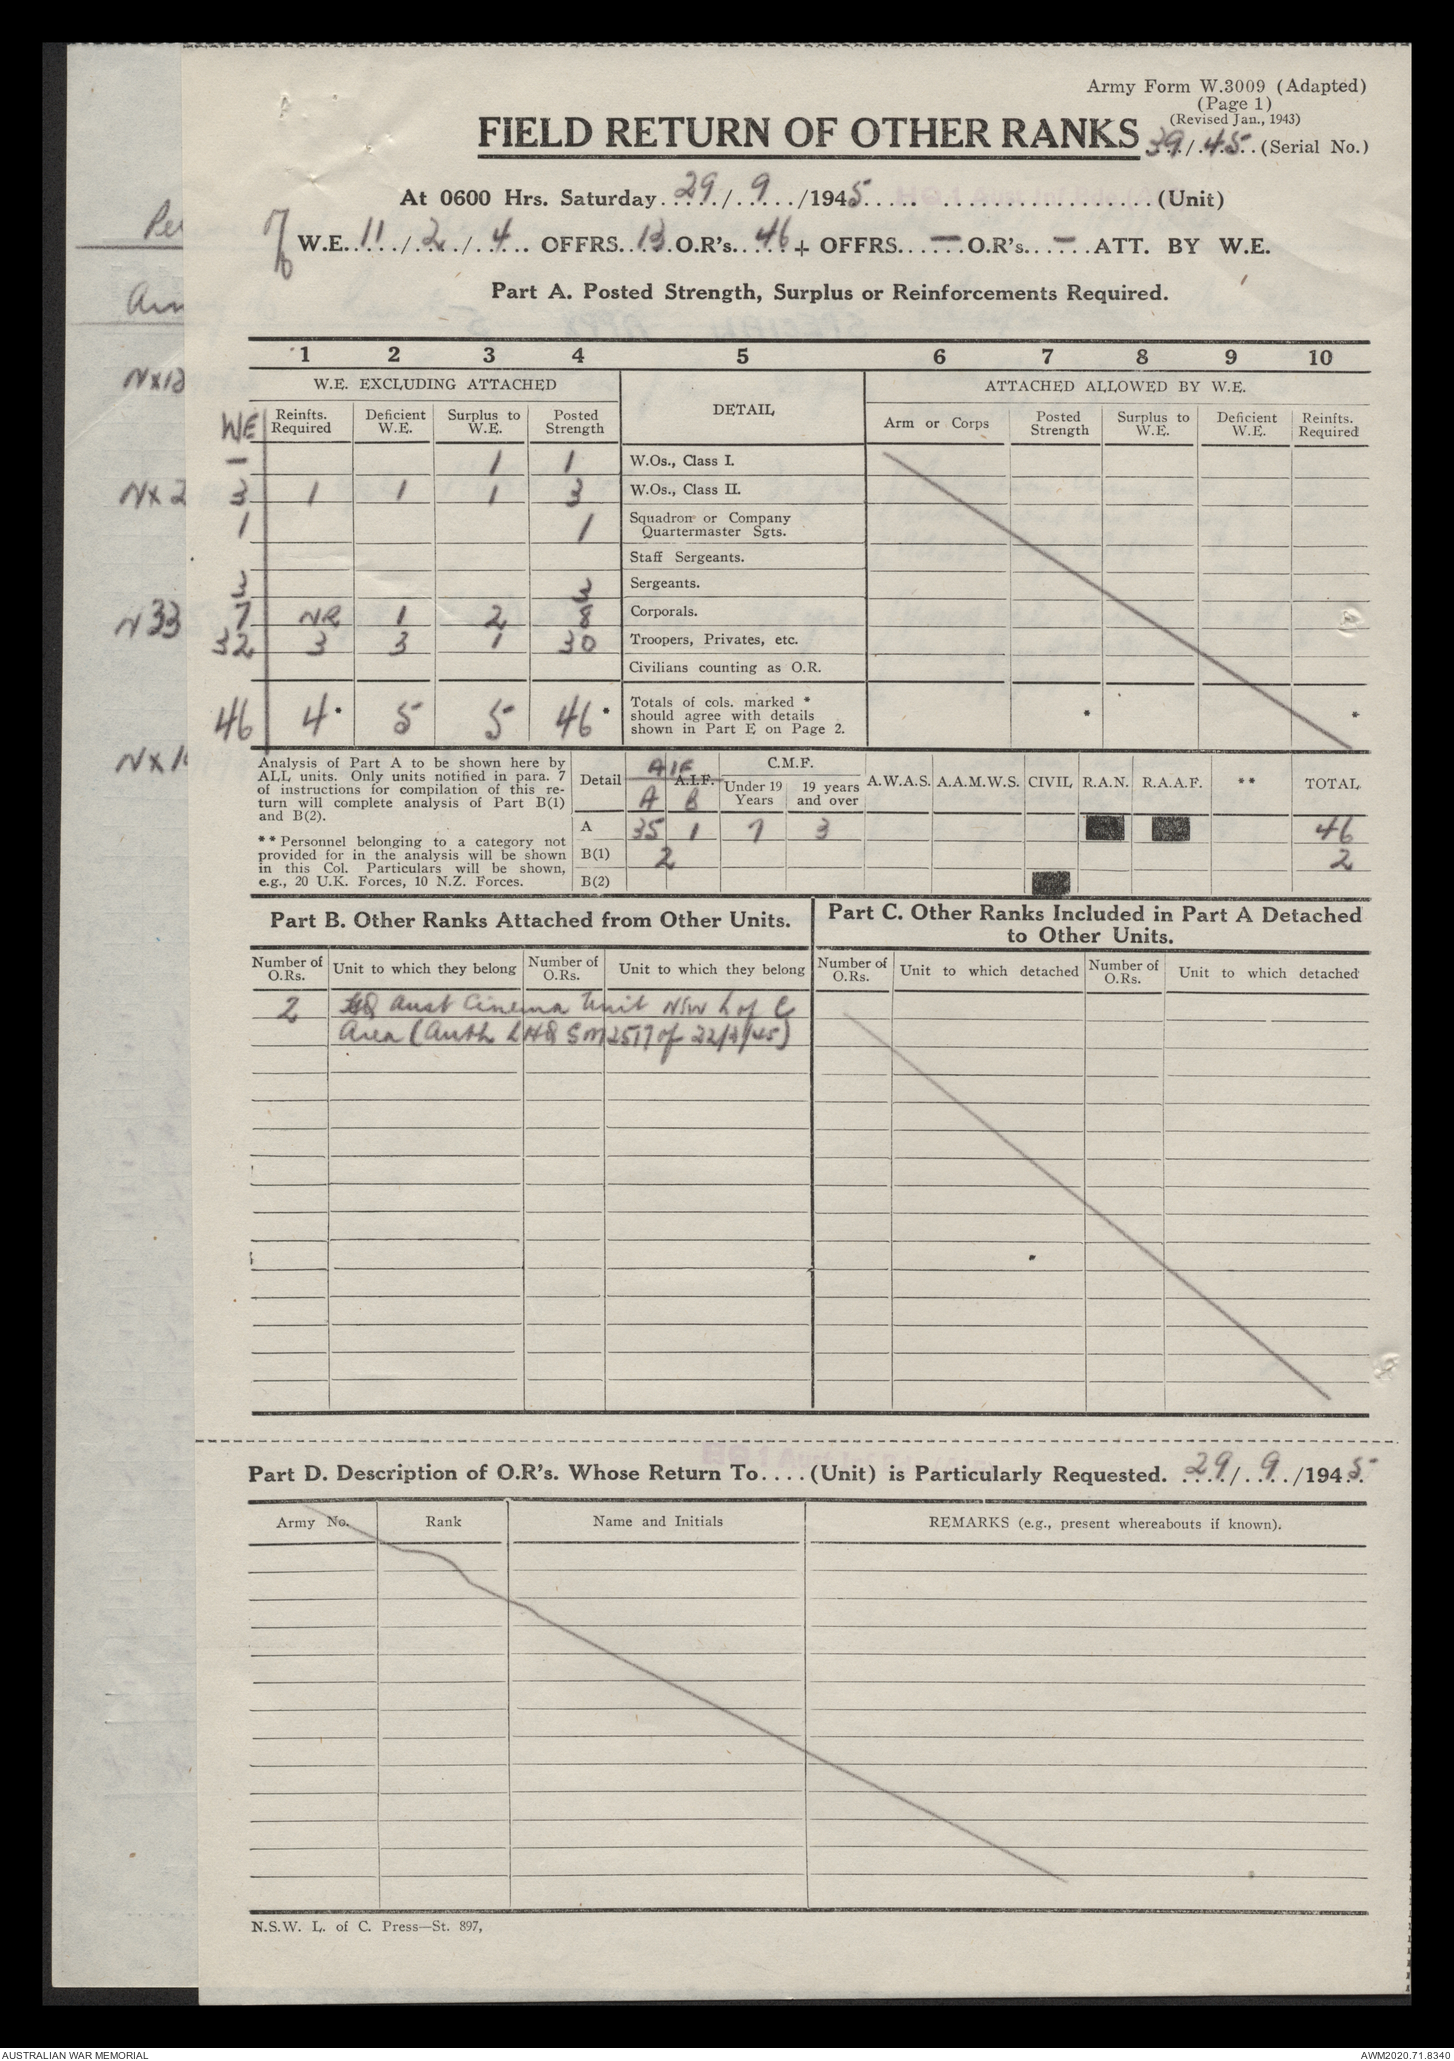 Army Form W.3009 (Adapted)
(Page 1)
(Revised Jan., 1943)
FIELD RETURN OF OTHER RANKS 39/45 (Serial No.)
At 0600 Hrs. Saturday 29/9/1945 HQ 1 Aust Inf Bde (AIF) (Unit)
W.E. 11/2/4 OFFRS. 13 O.R's. 46 + OFFRS. — O.R's. — ATT. BY W.E.
Part A. Posted Strength, Surplus or Reinforcements Required.
1 2 3 4 5 6 7 8 9 10
W.E. EXCLUDING ATTACHED DETAIL ATTACHED ALLOWED BY W.E.
WE Reinfts. Required Deficient W.E. Surplus to W.E. Posted Strength Arm or Corps Posted Strength Surplus to W.E. Deficient W.E. Reinfts. Required
— 1 1 W.Os., Class I.
3 1 1 1 3 W.Os., Class II.
1 1 Squadron or Company Quartermaster Sgts.
Staff Sergeants.
3 3 Sergeants.
7 NR 1 2 8 Corporals.
32 3 3 1 30 Troopers, Privates, etc.
Civilians counting as O.R.
46 4* 5 5 46* Totals of cols. marked * should agree with details shown in Part E on Page 2. * *
Analysis of Part A to be shown here by
ALL units. Only units notified in para. 7
of instructions for compilation of this re-
turn will complete analysis of Part B(1)
and B(2).
** Personnel belonging to a category not
provided for in the analysis will be shown
in this Col. Particulars will be shown,
e.g., 20 U.K. Forces, 10 N.Z. Forces.
Detail AIF A.I.F. C.M.F. A.W.A.S. A.A.M.W.S. CIVIL R.A.N. R.A.A.F. ** TOTAL
A B Under 19 Years 19 years and over
A 35 1 7 3 46
B(1) 2 2
B(2)
Part B. Other Ranks Attached from Other Units.
Part C. Other Ranks Included in Part A Detached
to Other Units.
Number of O.Rs. Unit to which they belong Number of O.Rs. Unit to which they belong Number of O.Rs. Unit to which detached Number of O.Rs. Unit to which detached
2 HQ Aust Cinema Unit NSW L of C
Area (Auth LHQ SM 2517 of 22/3/45)
HQ 1 Aust Inf Bde (AIF)
Part D. Description of O.R's. Whose Return To....(Unit) is Particularly Requested. 29/9/1945
Army No. Rank Name and Initials REMARKS (e.g., present whereabouts if known).
N.S.W. L. of C. Press—St. 897,
NX12
NX2
N33
NX1
AUSTRALIAN WAR MEMORIAL
AWM2020.71.8340